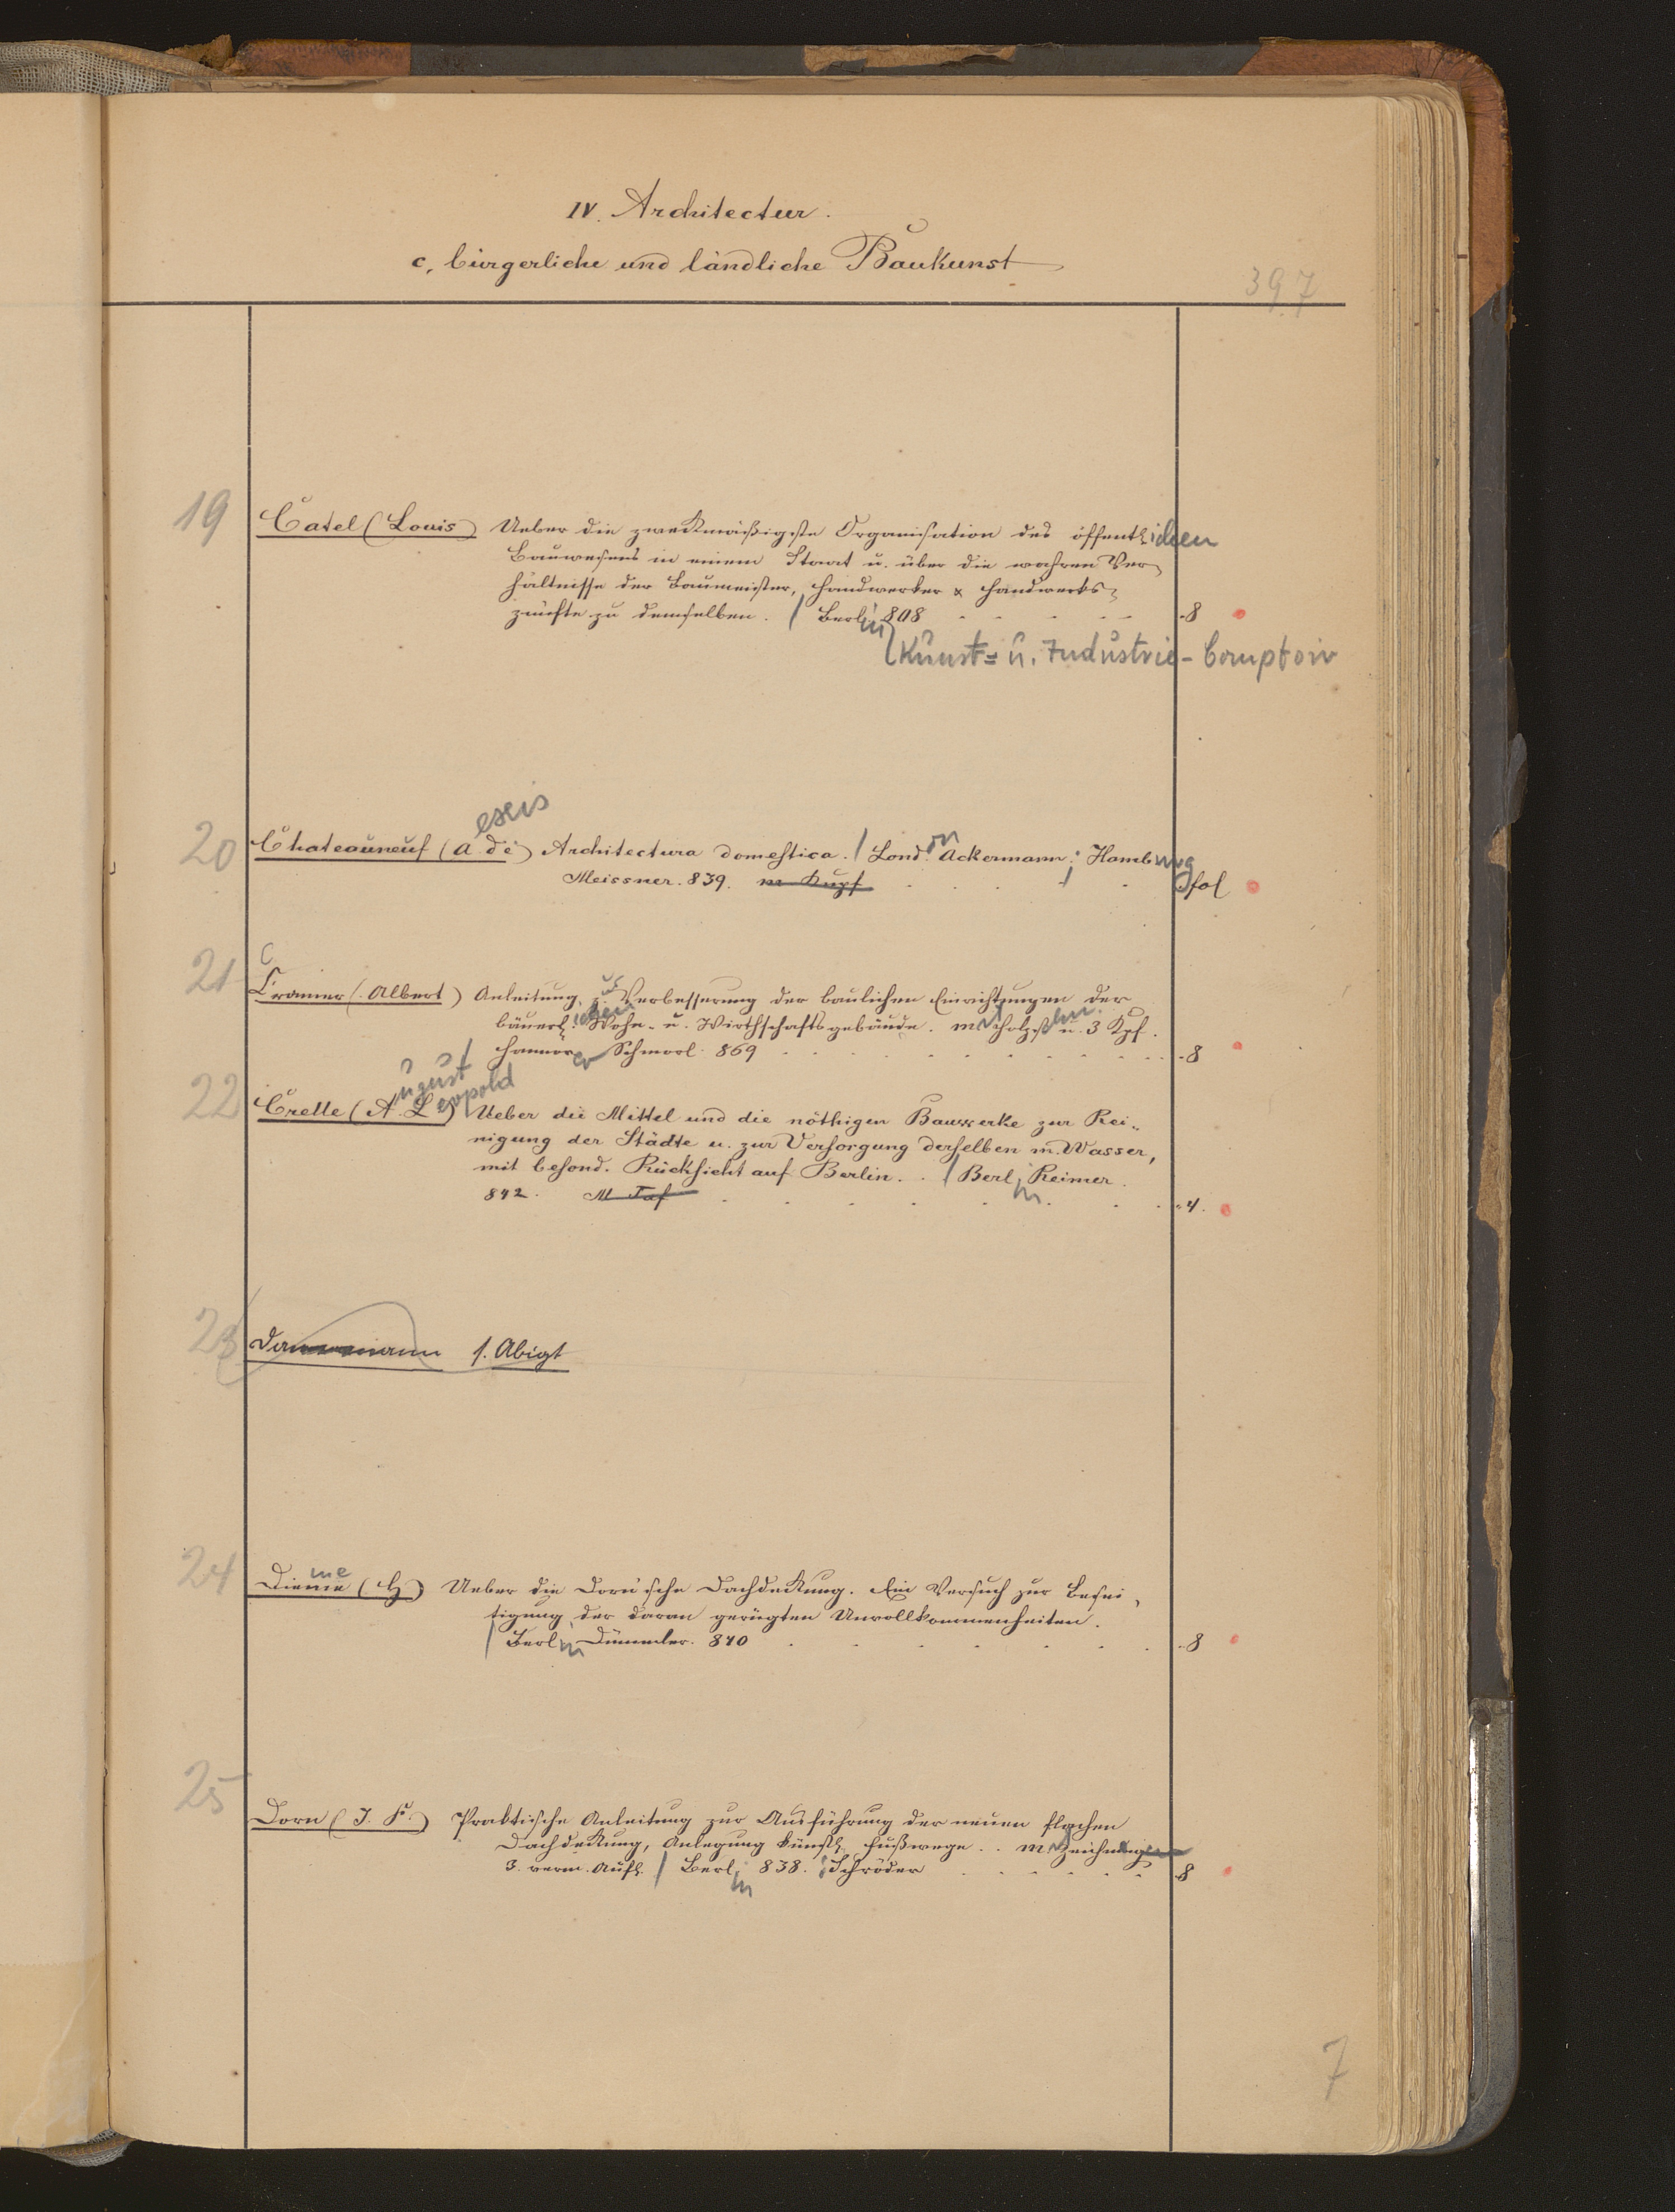 IV. Architectur.
c, bürgerliche und ländliche Baukunst
397
19 Catel (Louis) Ueber die zweckmäßigste Organisation des öffentlichen
Bauwesens in einem Staat u. über die wahren Ver
hältnisse der Baumeister, Handwerker & Handwerks
zünfte zu demselben. / Berlin 808 8
(Kunst= u. Industrie-Comptoir
exis
20 Chateauneuf (A de) Architectura domestica. / London Ackermann; Hamburg
Meissner. 839. m Kupf fol
21 Cramer (Albert) Anleitung zur Verbesserung der baulichen Einrichtungen der
bäuerlichen Wohn- u. Wirthschaftsgebäude. mit Holzschn. u. 3 Kpf.
/ Hannover Schmorl 869 8
22 Crelle (August Leopold) Ueber die Mittel und die nöthigen Bauwerke zur Rei„
nigung der Städte u. zur Versorgung derselben m. Wasser,
mit besond. Rücksicht auf Berlin. / Berlin Reimer.
842. M Taf 4.
23 Dannemann s. Abigt
me
24 Dieme (H) Ueber die Dorn'sche Dachdeckung. Ein Versuch zur Besei
tigung der daran gerügten Unvollkommenheiten.
/ Berlin Dümmler. 840 8
25 Dorn (J. F.) Praktische Anleitung zur Ausführung der neuen flachen
Dachdeckung, Anlegung künstl. Fußwege .. mit Zeichnungen
3. verm. Aufl. / Berlin 838. : Schröder 8
7